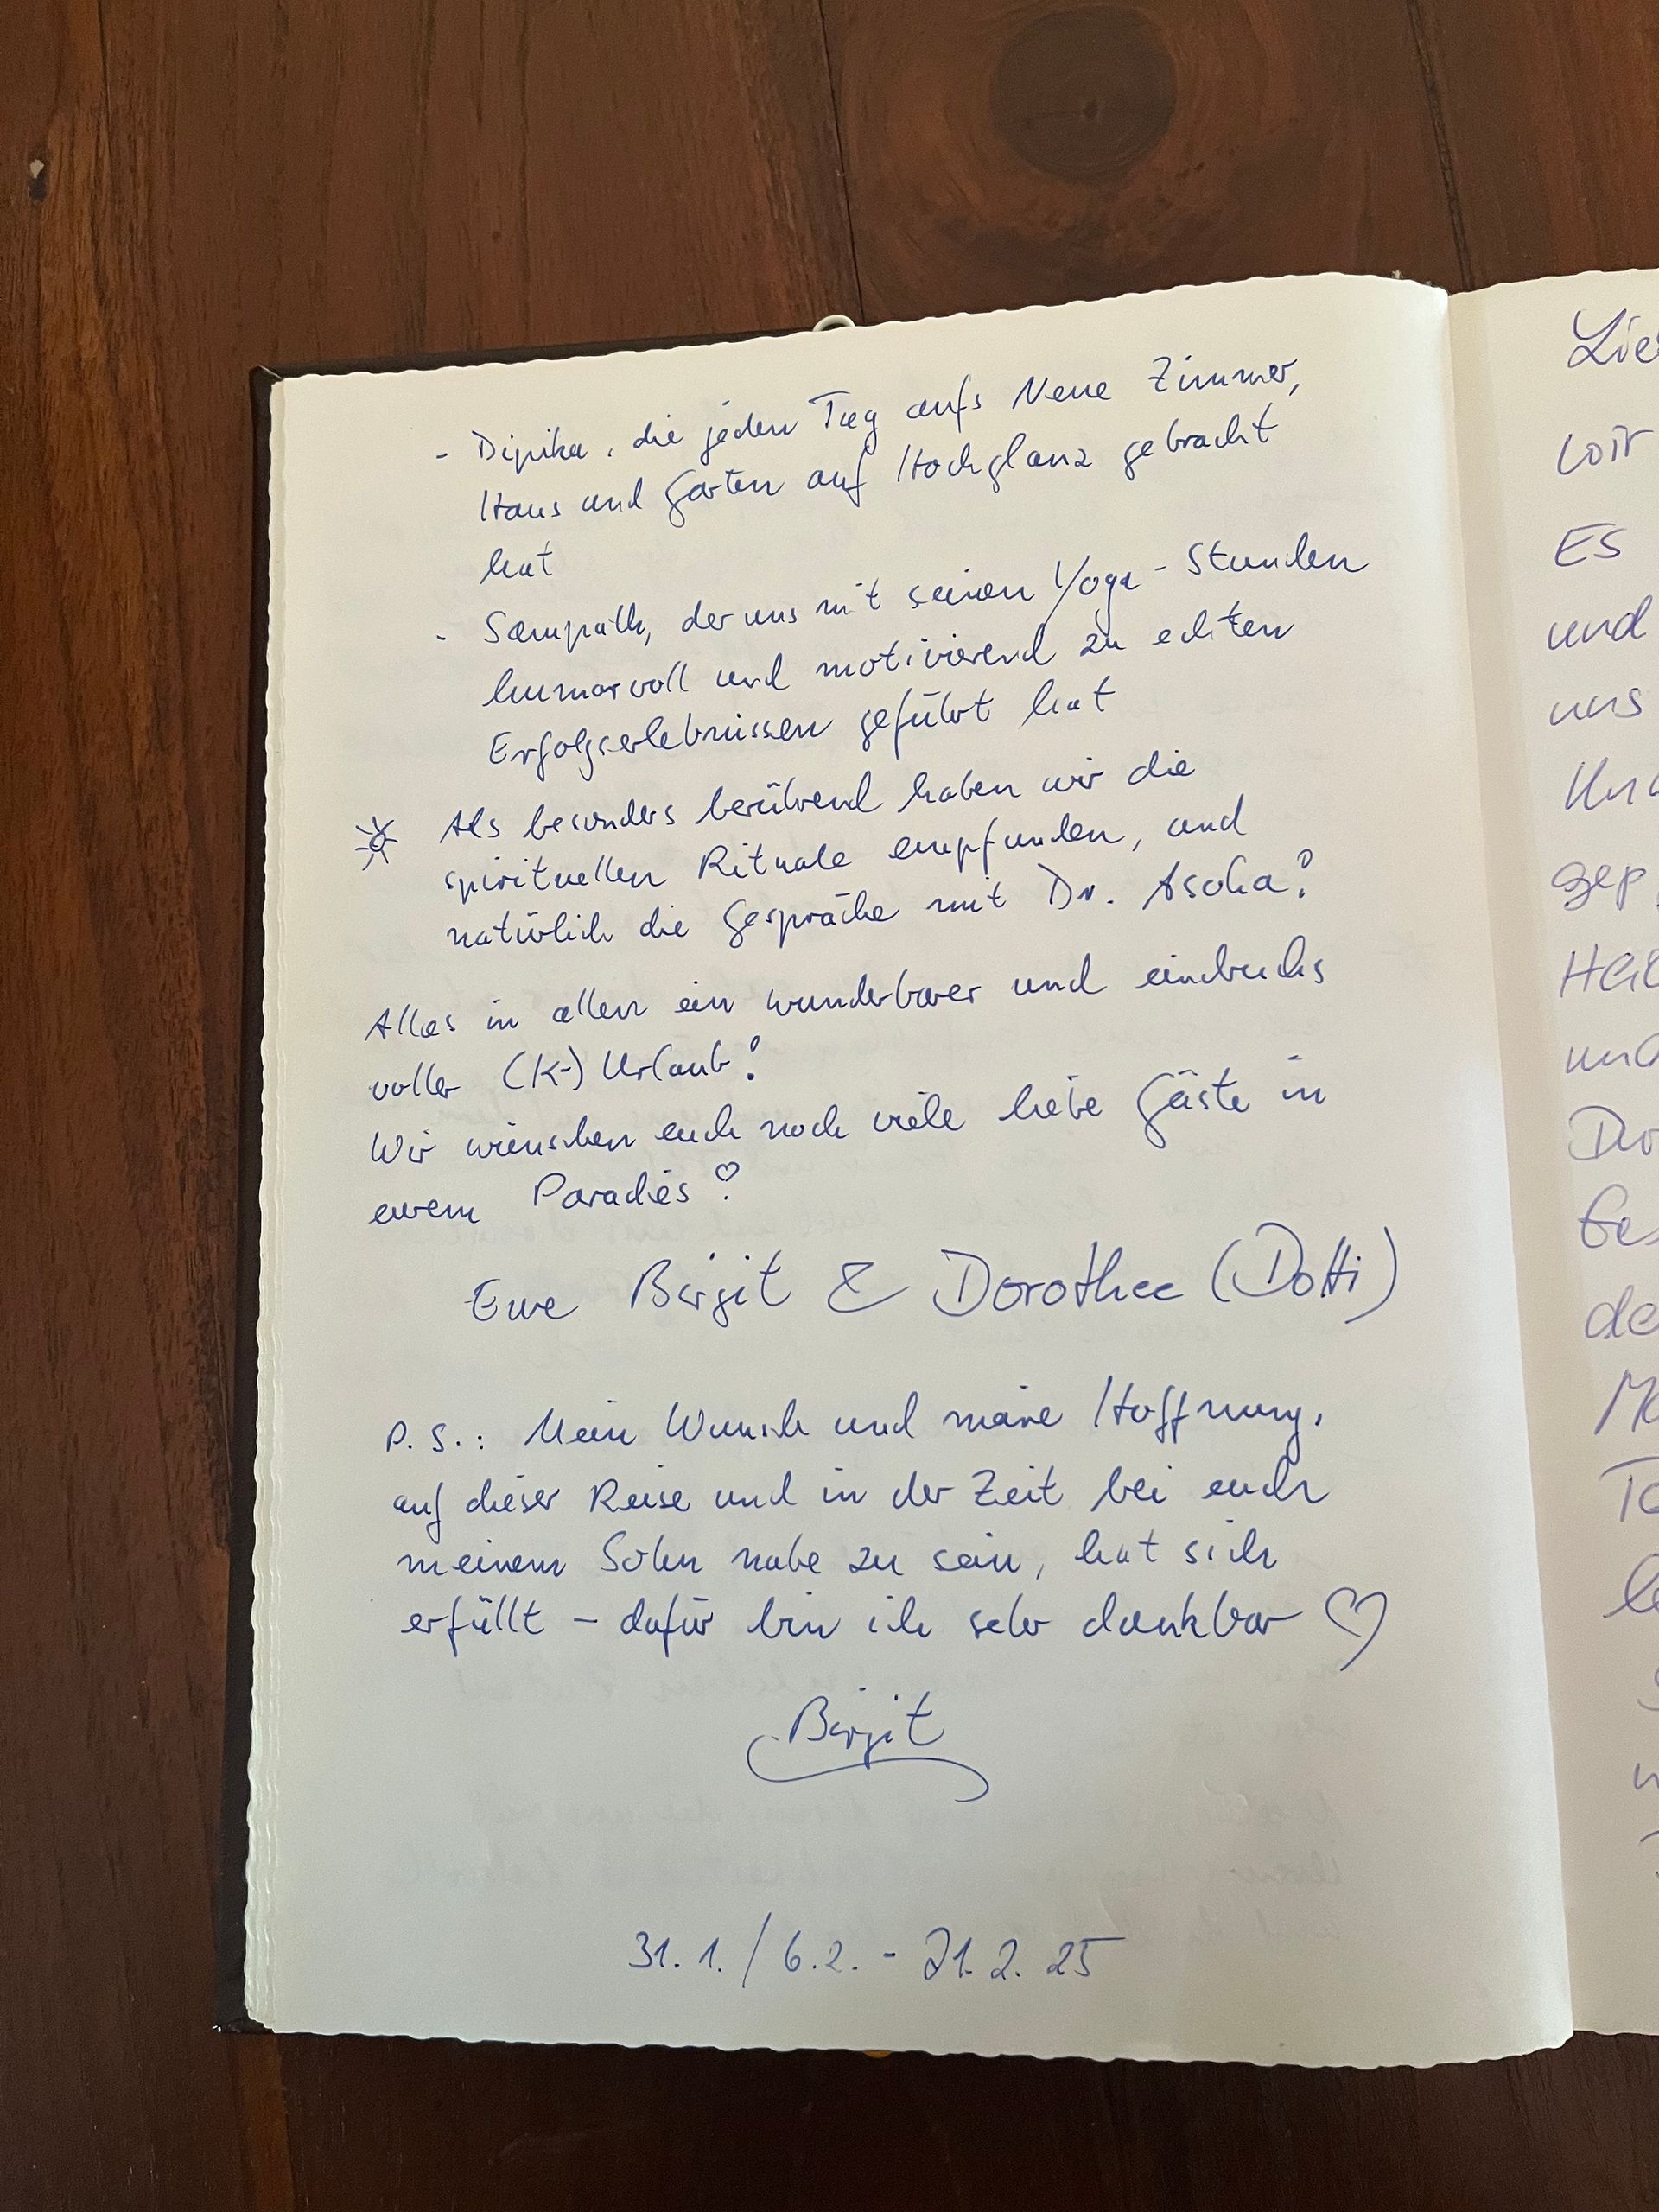 - Dipika, die jeden Tag aufs Neue Zimmer,
Haus und Garten auf Hochglanz gebracht
hat
- Sampath, der uns mit seinen Yoga-Stunden
humorvoll und motivierend zu echten
Erfolgserlebnissen geführt hat
Als besonders berührend haben wir die
spirituellen Rituale empfunden, und
natürlich die Gespräche mit Dr. Asoka!
Alles in allen ein wunderbarer und eindrucks
voller (K-) Urlaub!
Wir wünschen euch noch viele liebe Gäste in
eurem Paradies!
Eure Birgit & Dorothee (Dotti)
P.S.: Mein Wunsch und meine Hoffnung,
auf dieser Reise und in der Zeit bei euch
meinem Sohn nahe zu sein, hat sich
erfüllt – dafür bin ich sehr dankbar ♡
Birgit
31.1./6.2. - 21.2.25
Lie
wir
Es
und
uns
gep
und
de